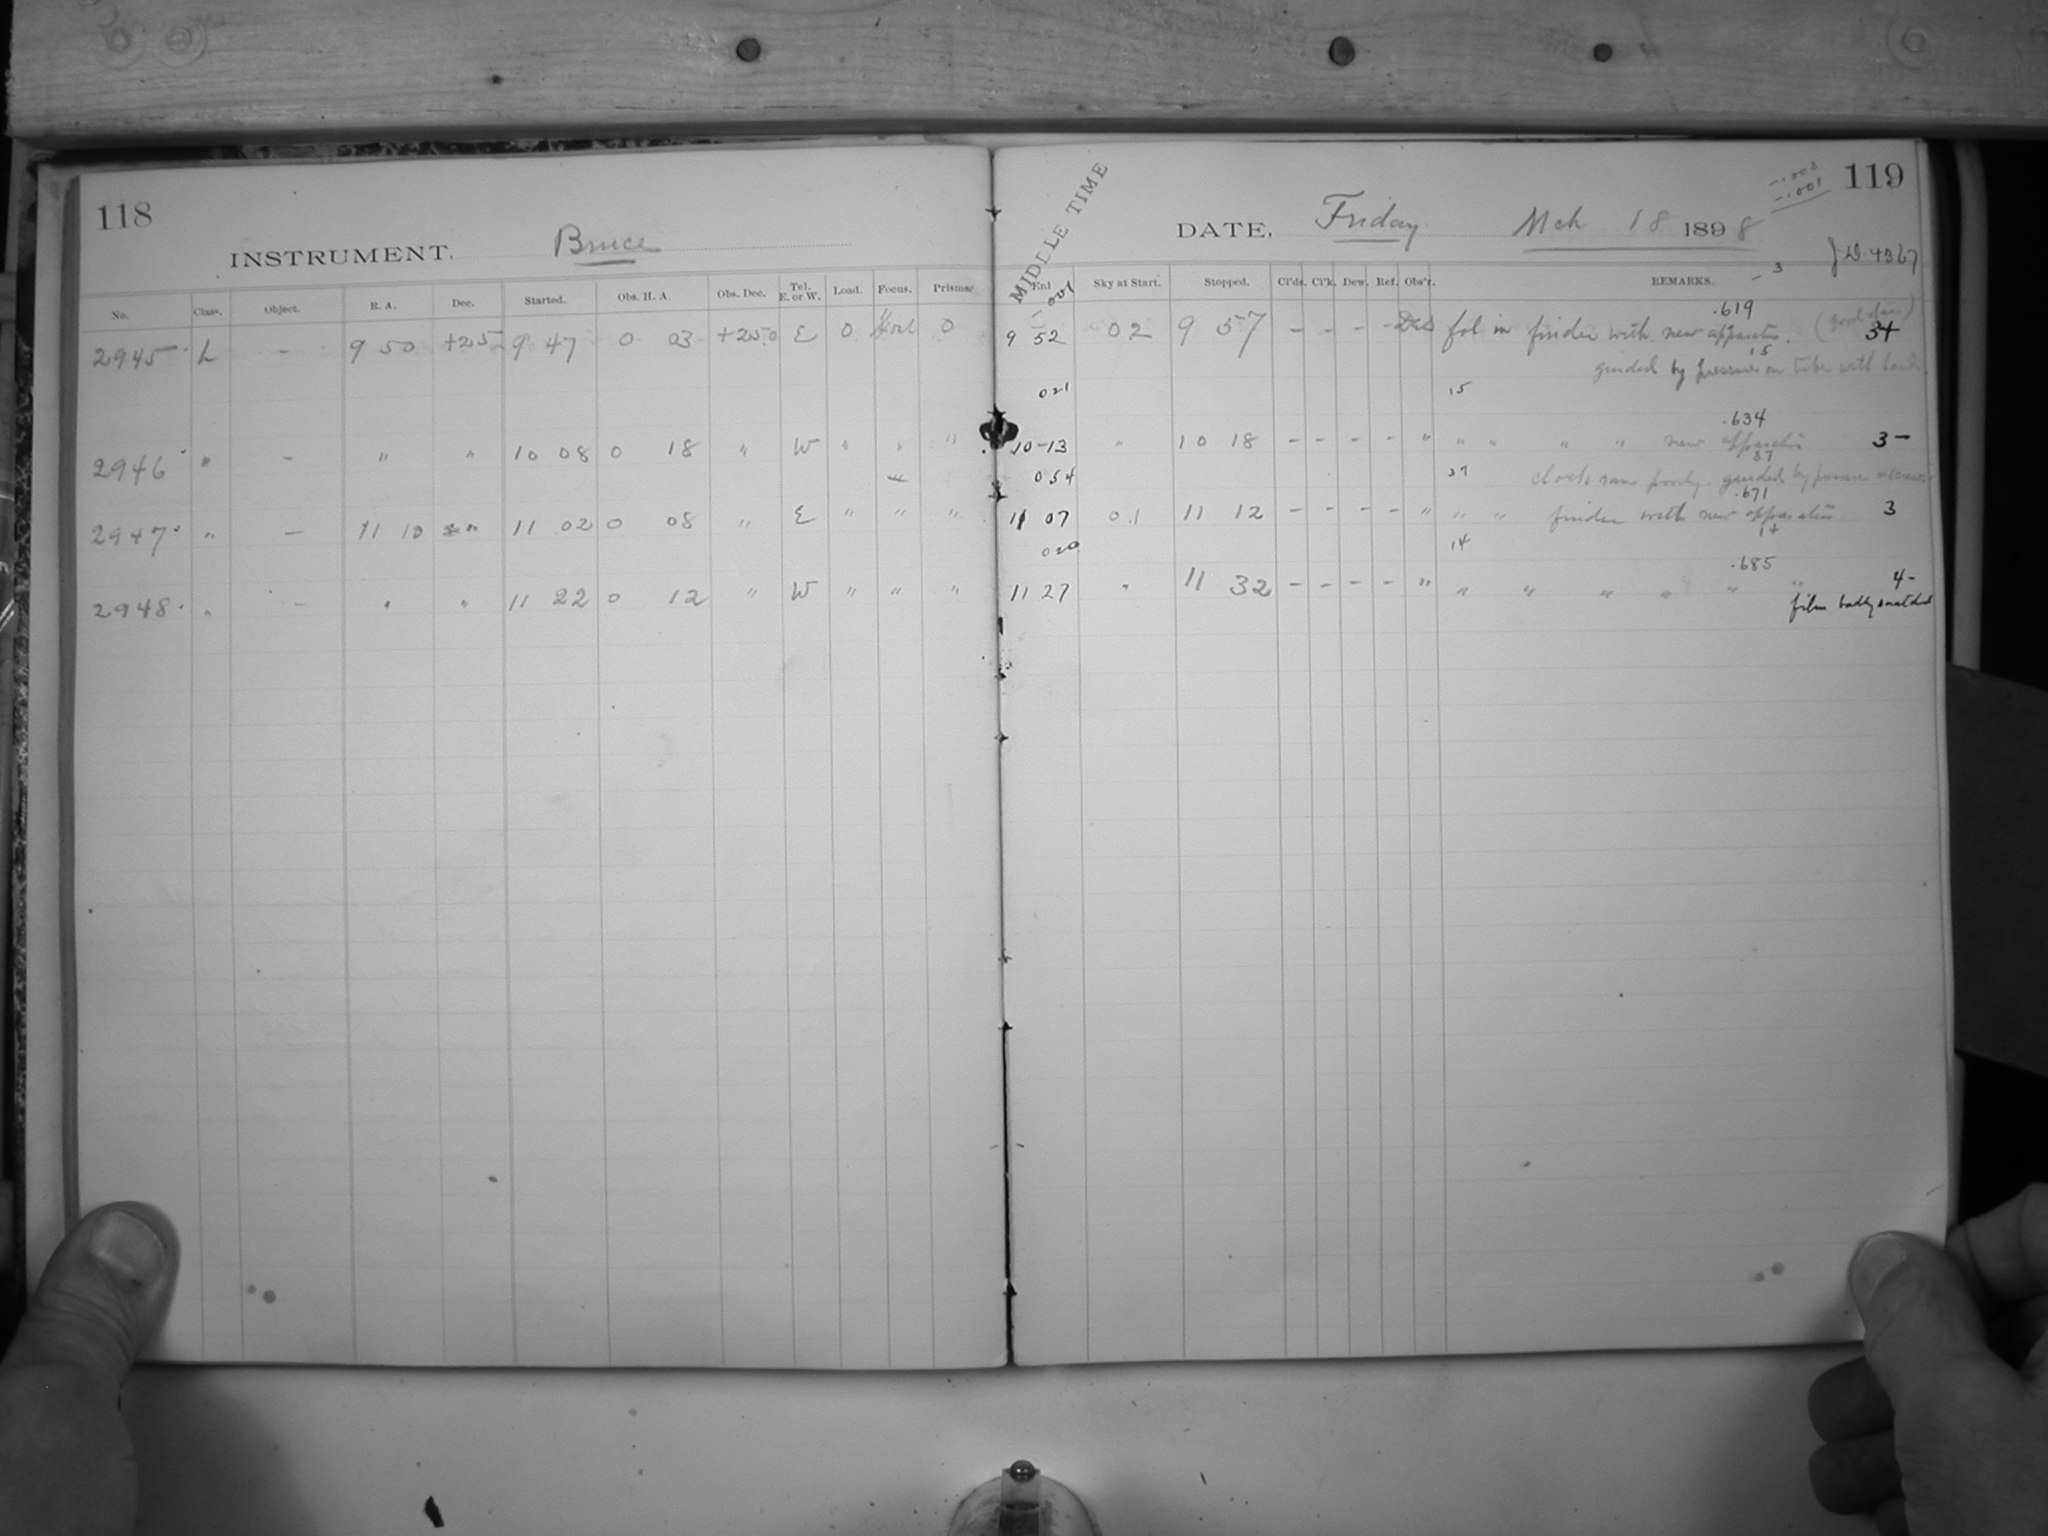 118
INSTRUMENT. Bruce
No. Class. Object. R. A. Dec. Started. Obs. H. A. Obs. Dec. Tel. E. or W. Load. Focus. Prisms.
2945 L - 9 50 +25 9 47 0 03 +25.0 E 0 0
2946 " - " " 10 08 0 18 " W " " "
2947 " - 11 10 " 11 02 0 08 " E " " "
2948 " - " " 11 22 0 12 " W " " "
119
-.003
-.001
MIDDLE TIME
DATE, Friday Mch 18 1898
J.D. 4367
Exl Sky at Start. Stopped. Cl'ds. Cl'k. Dew. Ref. Obs'r. REMARKS. -3
-001
.619
9 52 02 9 57 - - - - fol in finder with new apparatus. 3+
15
guided by pressure on tube with hand
021 15
.634
10-13 " 10 18 - - - - " " " " " new apparatus 3-
37
054 37 clock ran poorly. guided by pressure
.671
11 07 0.1 11 12 - - - - " " " finder with new apparatus 3
020 14 14
.685
11 27 " 11 32 - - - - " " " " " " " 4-
film badly